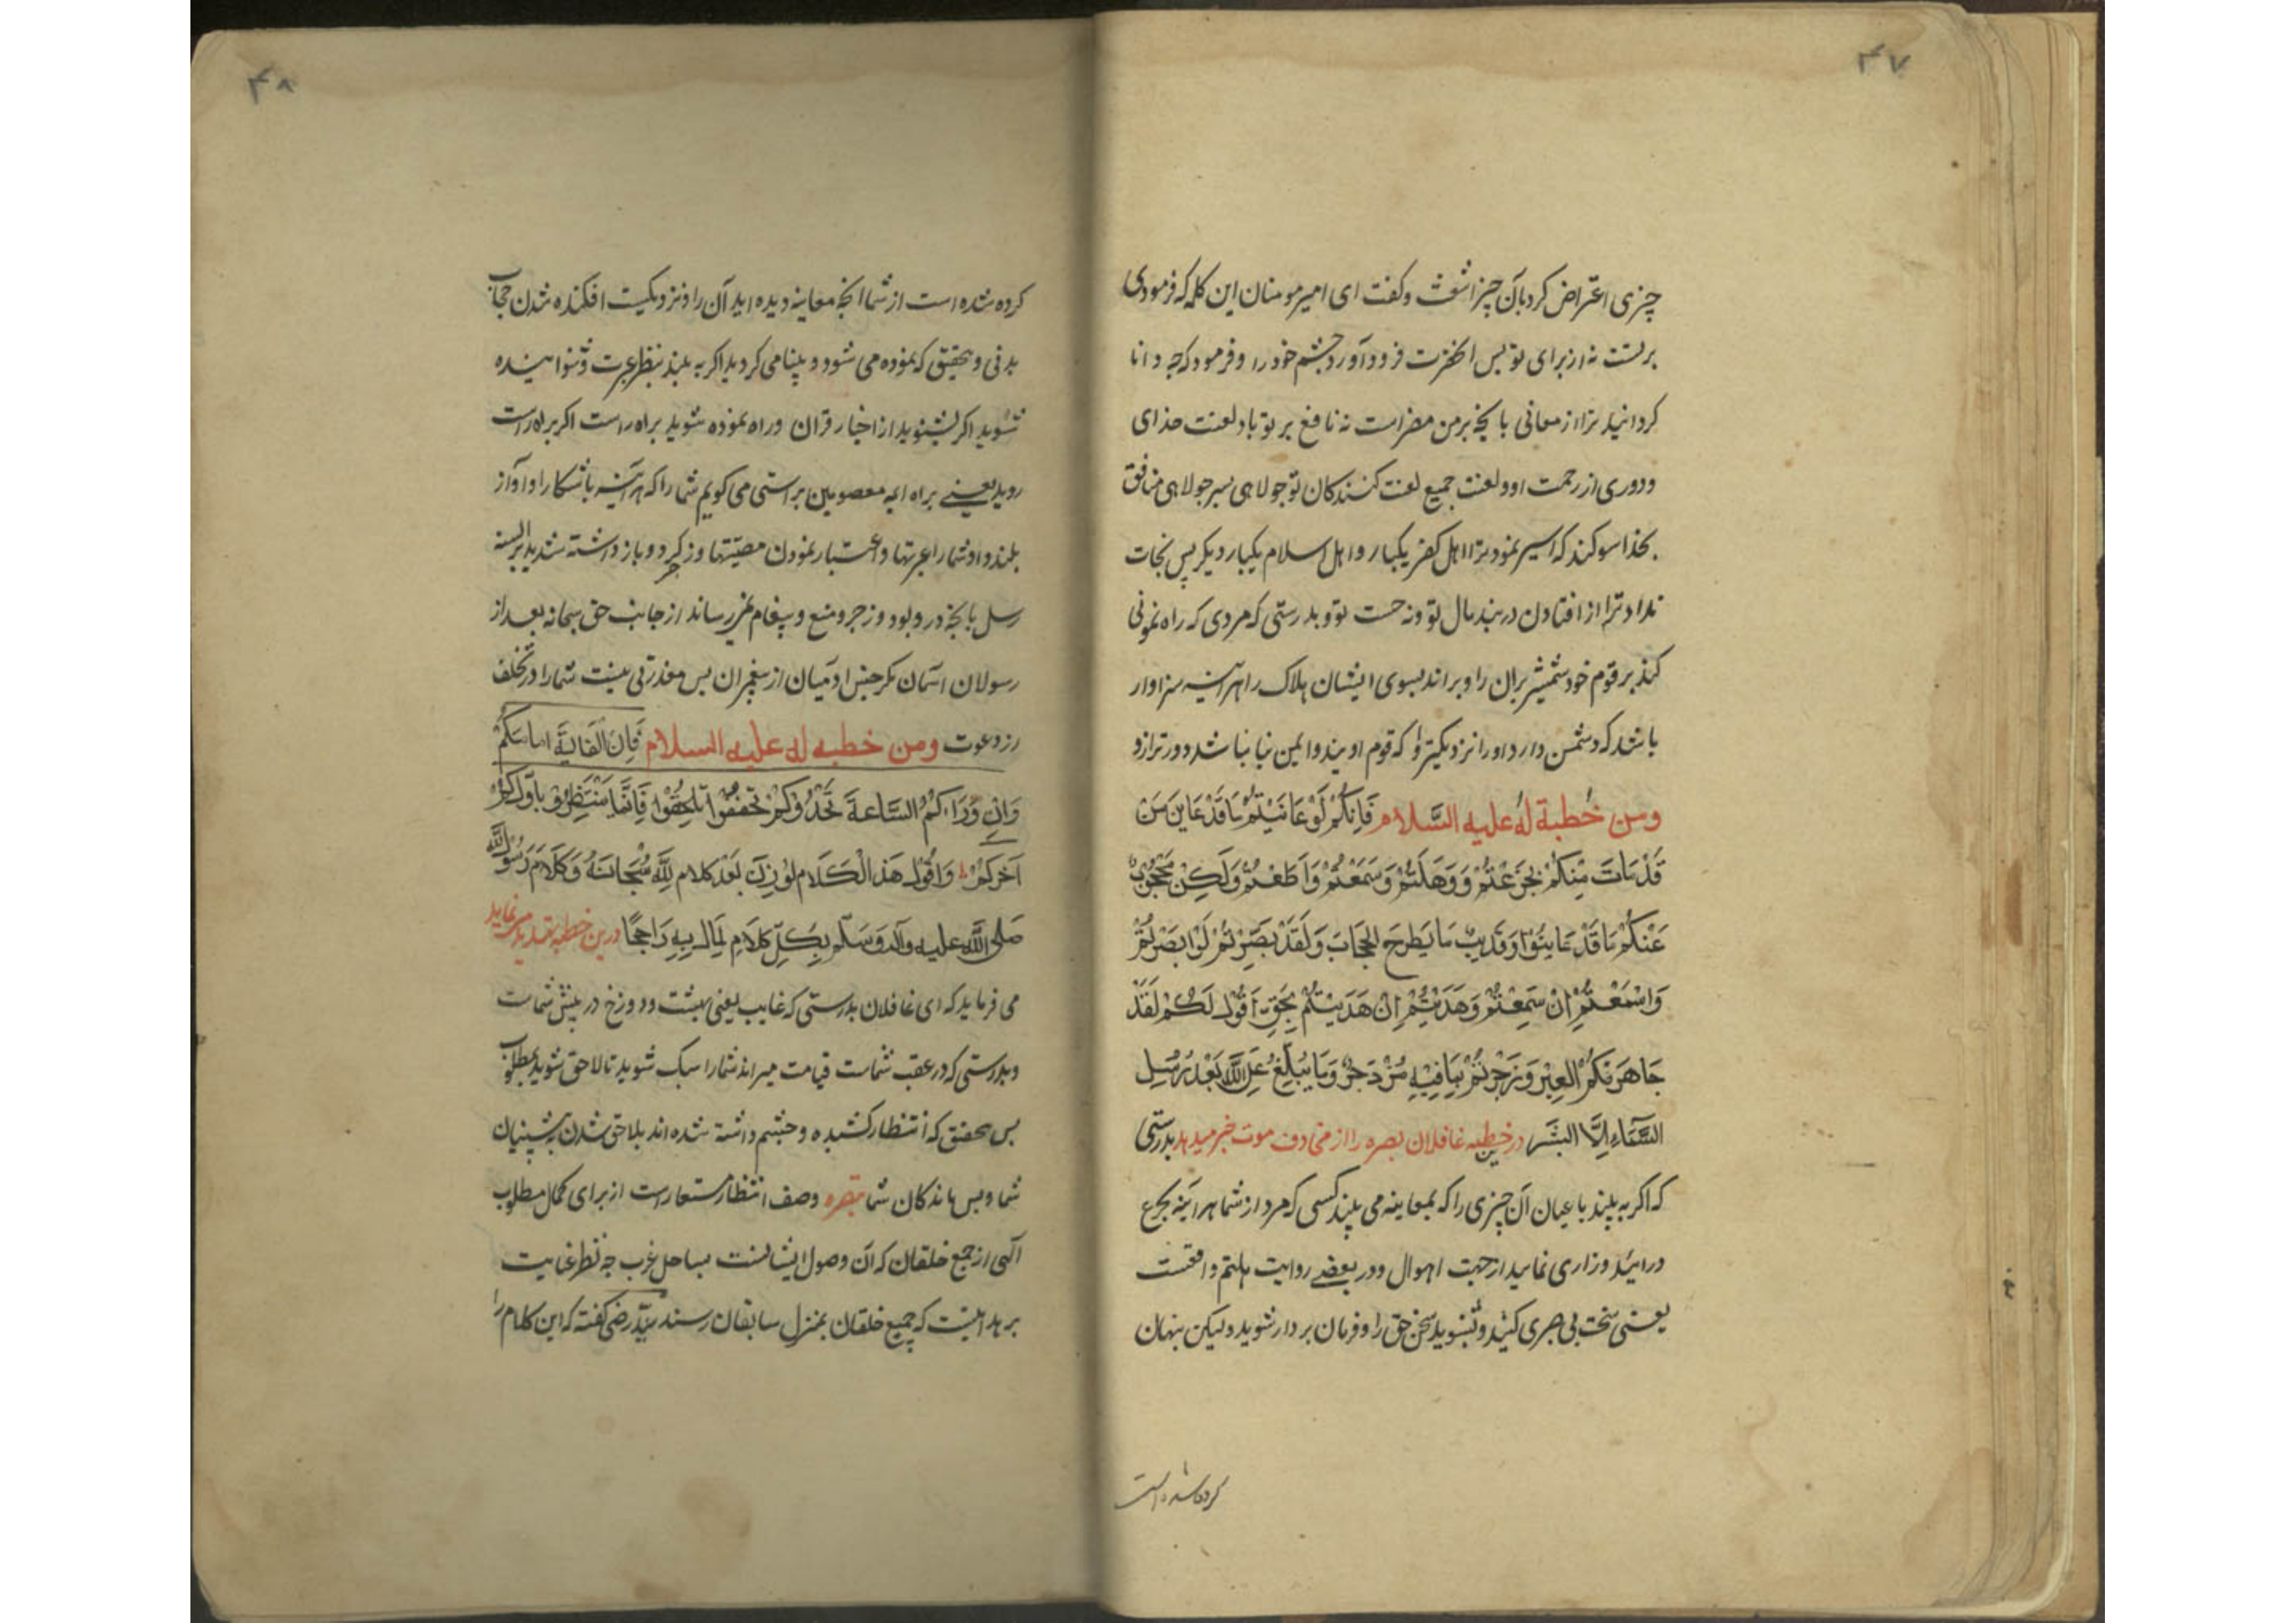 ۴۷
چیزی اعتراض کرد بآن چیز اشعث و کفت ای امیر مومنان این کلمه که فرمودی
بر تست نه از برای تو پس آنحضرت فرود آورد چشم خود را و فرمود که چه دانا
کردانید ترا از معانی بآنچه بر من مضر است نه نافع بر تو باد لعنت خدای
و دوری از رحمت او و لعنت جمیع لعنت کنندکان تو جولاهی پسر جولاهی منافق
بخدا سوکند که اسیر نمود ترا اهل کفر یکبار و اهل اسلام یکبار دیکر پس نجات
نداد ترا از افتادن در بند مال تو و نه حسب تو و بدرستی که مردی که راه نمونی
کند بر قوم خود شمشیر بران را و براند بسوی ایشان هلاک را هر آینه سزاوار
باشد که دشمن دارد او را نزدیکتر و که قوم اویند و ایمن نباشد دورتر ازو
ومن خطبة له علیه السلام فَاِنَّکُمْ لَوْ عَایَنْتُمْ مَا قَدْ عَایَنَ مَنْ
قَدْ مَاتَ مِنْکُمْ لَجَزَعْتُمْ وَوَهَلْتُمْ وَسَمِعْتُمْ وَاَطَعْتُمْ وَلَکِنْ مَحْجُوبٌ
عَنْکُمْ مَا قَدْ عَایَنُوا وَقَرِیبٌ مَا یُطْرَحُ الْحِجَابُ وَلَقَدْ بُصِّرْتُمْ لَوْ اَبْصَرْتُمْ
وَاُسْمِعْتُمْ اِنْ سَمِعْتُمْ وَهُدِیتُمْ اِنْ هَدَیْتُمْ بِحَقٍّ اَقُولُ لَکُمْ لَقَدْ
جَاهَرَتْکُمُ الْعِبَرُ وَزُجِرْتُمْ بِمَا فِیهِ مُزْدَجَرٌ وَمَا یُبَلِّغُ عَنِ اللَّهِ بَعْدَ رُسُلِ
السَّمَاءِ اِلَّا الْبَشَرُ درین خطبه غافلان بصره را از مخاوف موت خبر میدهد بدرستی
که اکر به بیند با عیان آن چیزی را که بمعاینه می بیند کسی که مرد از شما هر آینه بجزع
در آیید و زاری نمایید از جهت اهوال و در بعضی روایت هلتم واقعست
یعنی سخت بی صبری کنید و بشنوید سخن حق را و فرمان بردار شوید ولیکن پنهان
کرده شده است
۴۸
کرده شده است از شما آنچه معاینه دیده اید آن را و نزدیکست افکنده شدن حجاب
بدنی و بتحقیق که نموده می شود و بینا می کردید اکر به بیند بنظر عبرت و شنوانیده
شوید اکر بشنوید از اخبار قران و راه نموده شوید براه راست اکر براه راست
روید یعنی براه ایمه معصومین براستی می کویم شما را که هر آینه باشکارا و آواز
بلند داد شما را عبرتها و اعتبار نمودن مصیبتها و زجر کرد و باز داشته شدید بر السنه
رسل بآنچه در و بود و زجر و منع و پیغام نمی رساند از جانب حق سبحانه بعد از
رسولان آسمان مکر جنس ادمیان از پیغمبران پس معذرتی نیست شما را در تخلف
از دعوت ومن خطبه له علیه السلام فَاِنَّ الْغَایَةَ اَمَامَکُمْ
وَاِنَّ وَرَاءَکُمُ السَّاعَةَ تَحْدُوکُمْ تَخَفَّفُوا تَلْحَقُوا فَاِنَّمَا یُنْتَظَرُ بِاَوَّلِکُمْ
آخِرُکُمْ وَاَقُولُ هَذَا الْکَلَامُ لَوْ وُزِنَ بَعْدَ کَلَامِ اللَّهِ سُبْحَانَهُ وَکَلَامِ رَسُولِ اللَّهِ
صَلَّی اللَّهُ عَلَیهِ وَآلِهِ وَسَلَّمَ بِکُلِّ کَلَامٍ لَمَالَ بِهِ رَاجِحًا درین خطبه تهدید می نماید
می فرماید که ای غافلان بدرستی که غایب یعنی بهشت و دوزخ در پیش شماست
و بدرستی که در عقب شماست قیامت میراند شما را سبک شوید تا لاحق شوید بمطلوب
پس بتحقیق که انتظار کشیده و چشم داشته شده اند بلاحق شدن پیشینیان
شما و پس ماندکان شما تبصره وصف انتظار مستعار است از برای کمال مطلوب
الهی از جمیع خلقان که آن وصول ایشانست بساحل غرب چه نظر عنایت
بر بدانیست که جمیع خلقان بمنزل سابقان رسند سید رضی کفته که این کلام را